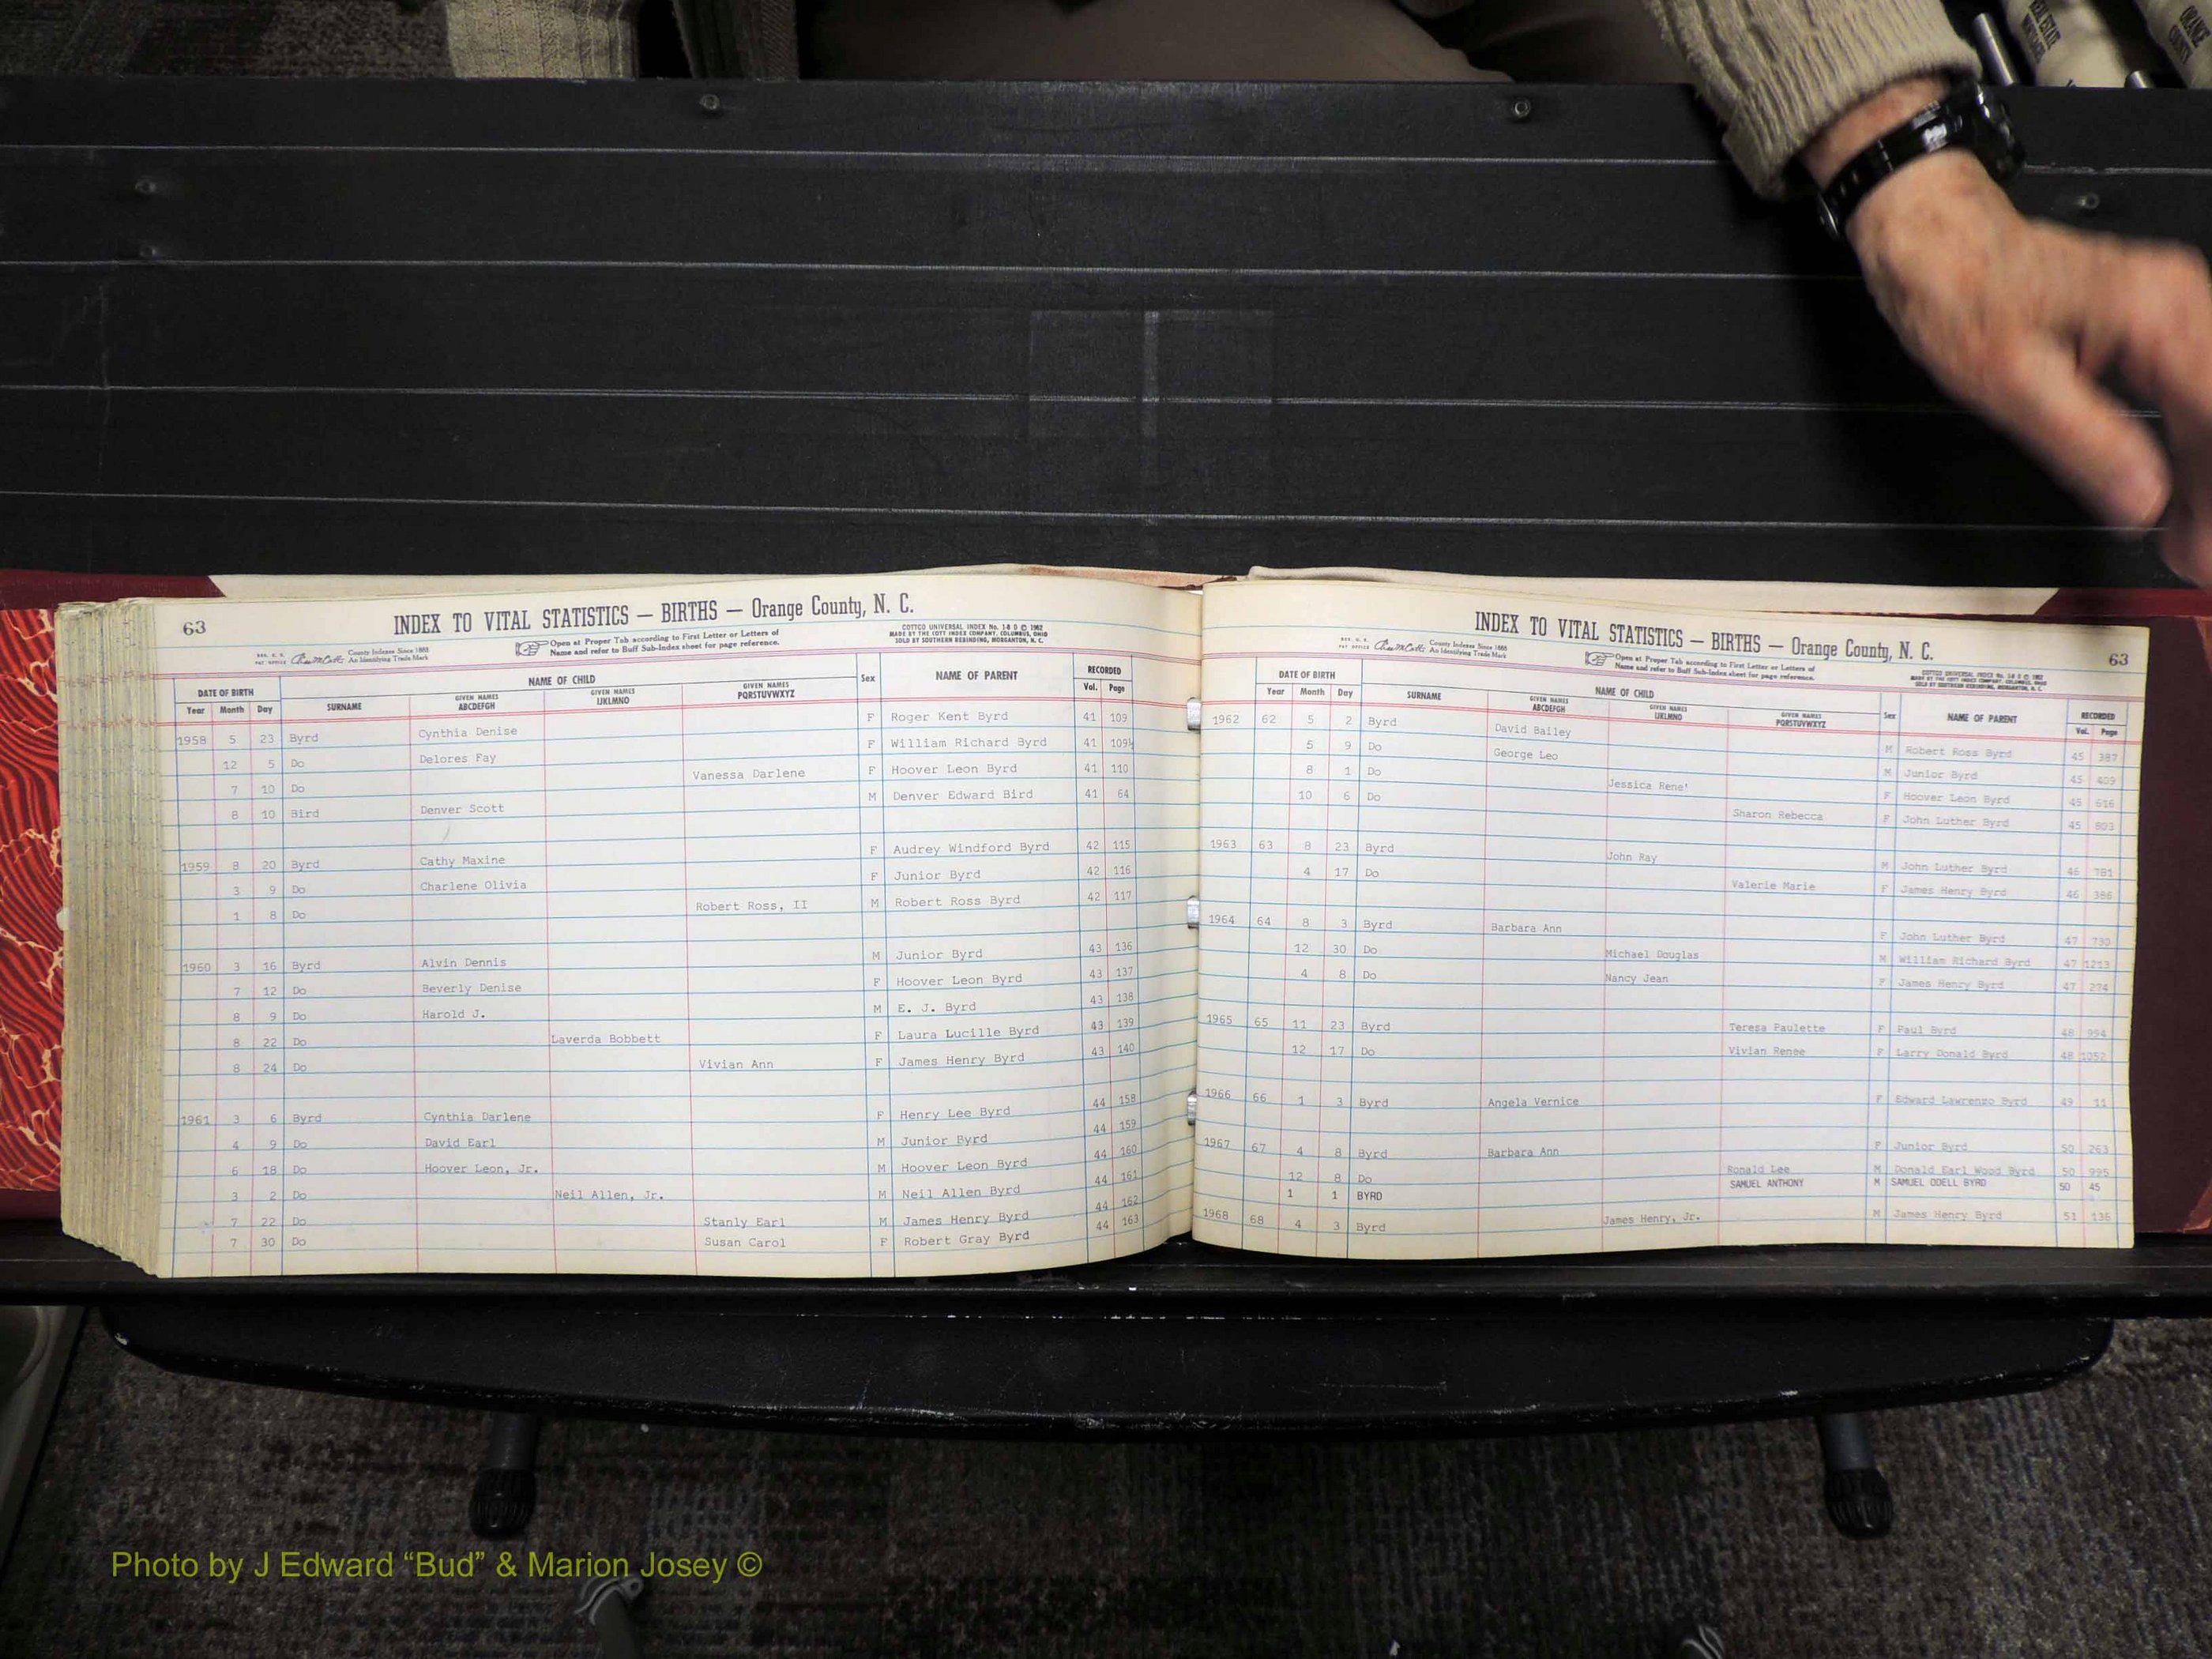 REAL ESTATE
ORANGE COUNTY
63
INDEX TO VITAL STATISTICS — BIRTHS — Orange County, N. C.
COTTCO UNIVERSAL INDEX No. 1-8 D © 1962
MADE BY THE COTT INDEX COMPANY, COLUMBUS, OHIO
SOLD BY SOUTHERN REBINDING, MORGANTON, N. C.
Open at Proper Tab according to First Letter or Letters of
Name and refer to Buff Sub-Index sheet for page reference.
REG. U. S. PAT OFFICE County Indexes Since 1888
An Identifying Trade Mark
DATE OF BIRTH NAME OF CHILD Sex NAME OF PARENT RECORDED
Year Month Day SURNAME GIVEN NAMES ABCDEFGH GIVEN NAMES IJKLMNO GIVEN NAMES PQRSTUVWXYZ Vol. Page
1958 5 23 Byrd Cynthia Denise F Roger Kent Byrd 41 109
12 5 Do Delores Fay F William Richard Byrd 41 109½
7 10 Do Vanessa Darlene F Hoover Leon Byrd 41 110
8 10 Bird Denver Scott M Denver Edward Bird 41 64
1959 8 20 Byrd Cathy Maxine F Audrey Windford Byrd 42 115
3 9 Do Charlene Olivia F Junior Byrd 42 116
1 8 Do Robert Ross, II M Robert Ross Byrd 42 117
1960 3 16 Byrd Alvin Dennis M Junior Byrd 43 136
7 12 Do Beverly Denise F Hoover Leon Byrd 43 137
8 9 Do Harold J. M E. J. Byrd 43 138
8 22 Do Laverda Bobbett F Laura Lucille Byrd 43 139
8 24 Do Vivian Ann F James Henry Byrd 43 140
1961 3 6 Byrd Cynthia Darlene F Henry Lee Byrd 44 158
4 9 Do David Earl M Junior Byrd 44 159
6 18 Do Hoover Leon, Jr. M Hoover Leon Byrd 44 160
3 2 Do Neil Allen, Jr. M Neil Allen Byrd 44 161
7 22 Do Stanly Earl M James Henry Byrd 44 162
7 30 Do Susan Carol F Robert Gray Byrd 44 163
INDEX TO VITAL STATISTICS — BIRTHS — Orange County, N. C.
63
REG. U. S. PAT OFFICE County Indexes Since 1888
An Identifying Trade Mark
Open at Proper Tab according to First Letter or Letters of
Name and refer to Buff Sub-Index sheet for page reference.
COTTCO UNIVERSAL INDEX No. 1-8 D © 1962
MADE BY THE COTT INDEX COMPANY, COLUMBUS, OHIO
SOLD BY SOUTHERN REBINDING, MORGANTON, N. C.
DATE OF BIRTH NAME OF CHILD Sex NAME OF PARENT RECORDED
Year Month Day SURNAME GIVEN NAMES ABCDEFGH GIVEN NAMES IJKLMNO GIVEN NAMES PQRSTUVWXYZ Vol. Page
1962 62 5 2 Byrd David Bailey M Robert Ross Byrd 45 387
5 9 Do George Leo M Junior Byrd 45 409
8 1 Do Jessica Rene' F Hoover Leon Byrd 45 616
10 6 Do Sharon Rebecca F John Luther Byrd 45 803
1963 63 8 23 Byrd John Ray M John Luther Byrd 46 781
4 17 Do Valerie Marie F James Henry Byrd 46 386
1964 64 8 3 Byrd Barbara Ann F John Luther Byrd 47 730
12 30 Do Michael Douglas M William Richard Byrd 47 1213
4 8 Do Nancy Jean F James Henry Byrd 47 274
1965 65 11 23 Byrd Teresa Paulette F Paul Byrd 48 994
12 17 Do Vivian Renee F Larry Donald Byrd 48 1052
1966 66 1 3 Byrd Angela Vernice F Edward Lawrenzo Byrd 49 11
1967 67 4 8 Byrd Barbara Ann F Junior Byrd 50 263
12 8 Do Ronald Lee M Donald Earl Wood Byrd 50 995
1 1 BYRD SAMUEL ANTHONY M SAMUEL ODELL BYRD 50 45
1968 68 4 3 Byrd James Henry, Jr. M James Henry Byrd 51 136
Photo by J Edward “Bud” & Marion Josey ©